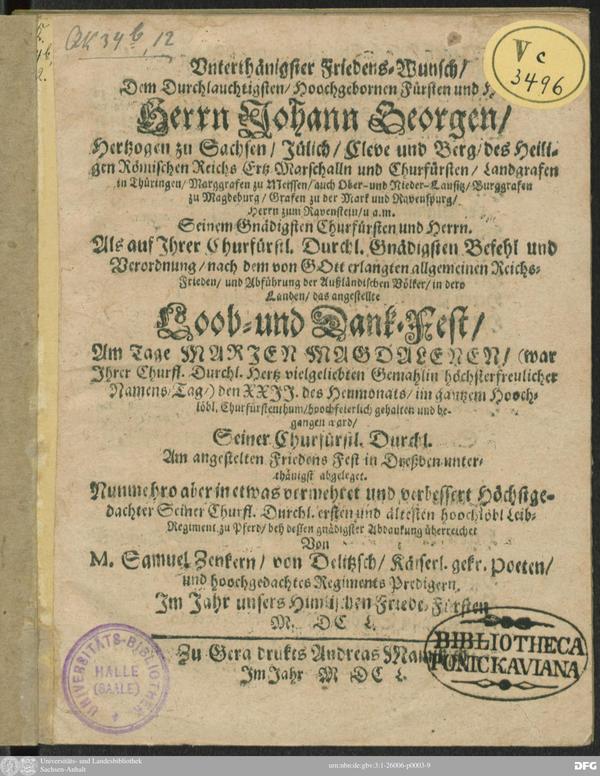 QK 34 b, 12
V c
3496
Unterthänigster Friedens-Wunsch/
Dem Durchlauchtigsten/ Hoochgebornen Fürsten und
Herrn Johann Georgen/
Hertzogen zu Sachsen/ Jülich/ Cleve und Berg/ des Heili-
gen Römischen Reichs Ertz Marschalln und Churfürsten/ Landgrafen
in Thüringen/ Marggrafen zu Meissen/ auch Ober-und Nieder-Lausitz/ Burggrafen
zu Magdeburg/ Grafen zu der Mark und Ravenspurg/
Herrn zum Ravenstein/ u a.m.
Seinem Gnädigsten Churfürsten und Herrn.
Als auf Ihrer Churfürstl. Durchl. Gnädigsten Befehl und
Verordnung/ nach dem von GOtt erlangten allgemeinen Reichs-
Frieden/ und Abführung der Außländischen Völker/ in dero
Landen/ das angestellte
Loob-und Dank-Fest/
Am Tage MARJEN MAGDALENEN/ (war
Ihrer Churfl. Durchl. Hertz vielgeliebten Gemahlin höchsterfreulicher
Namens/Tag/) den XXJJ. des Heumonats/ im gantzem Hooch-
löbl. Churfürstenthum/ hoochfeierlich gehalten und be-
gangen ward/
Seiner Churfürstl. Durchl.
Am angestelten Friedens Fest in Dreßden unter-
thänigst abgeleget.
Nunmehro aber in etwas vermehret und verbessert Höchstge-
dachter Seiner Churfl. Durchl. ersten und ältesten hoochlöbl Leib-
Regiment zu Pferd/ beh dessen gnädigster Abdankung überreichet
Von
M. Samuel Zenkern/ von Delitzsch/ Käiserl. gekr. Poeten/
und hoochgedachtes Regiments Predigern.
Im Jahr unsers Himlischen Friede Fürsten
M. DC L.
Zu Gera drukts Andreas
Im Jahr M DC L.
UNIVERSITÄTS-BIBLIOTHEK
HALLE
(SAALE)
BIBLIOTHECA
PONICKAVIANA
Universitäts- und Landesbibliothek
Sachsen-Anhalt
urn:nbn:de:gbv:3:1-26006-p0003-9
DFG